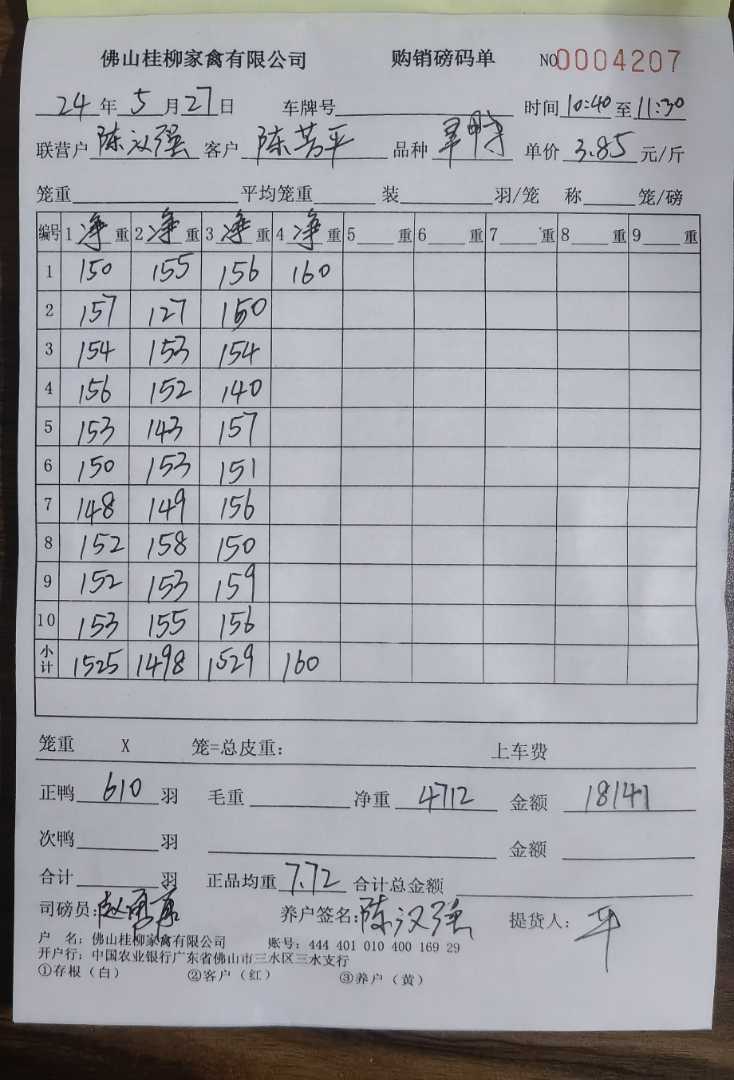 佛山桂柳家禽有限公司 购销磅码单 NO0004207
24年5月27日 车牌号 时间10:40至11:30
联营户陈汉强 客户陈芳平 品种 单价3.85元/斤
笼重 平均笼重 装 羽/笼 称 笼/磅
编号 1净重 2净重 3净重 4净重 5 重 6 重 7 重 8 重 9 重
1 150 155 156 160
2 157 127 150
3 154 153 154
4 156 152 140
5 153 143 157
6 150 153 151
7 148 149 156
8 152 158 150
9 152 153 159
10 153 155 156
小计 1525 1498 1529 160
笼重 X 笼=总皮重: 上车费
正鸭610羽 毛重 净重4712 金额18141
次鸭 羽 金额
合计 羽 正品均重7.72 合计总金额
司磅员: 养户签名:陈汉强 提货人:平
户 名:佛山桂柳家禽有限公司 账号:444 401 010 400 169 29
开户行:中国农业银行广东省佛山市三水区三水支行
①存根(白) ②客户(红) ③养户(黄)